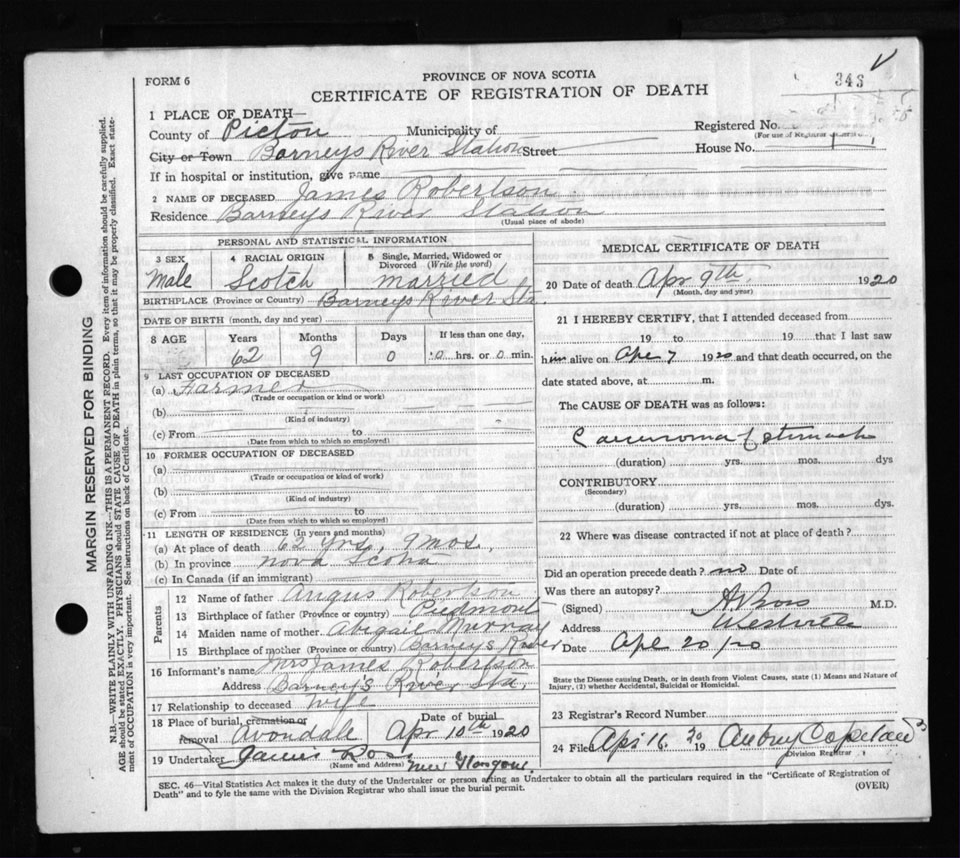 343
FORM 6
PROVINCE OF NOVA SCOTIA
CERTIFICATE OF REGISTRATION OF DEATH
1 PLACE OF DEATH—
County of Picton Municipality of Registered No.
(For use of Registrar General)
City or Town Barneys River Station Street House No.
If in hospital or institution, give name
2 NAME OF DECEASED James Robertson
Residence Barneys River Station
(Usual place of abode)
PERSONAL AND STATISTICAL INFORMATION
3 SEX 4 RACIAL ORIGIN 5 Single, Married, Widowed or Divorced (Write the word)
Male Scotch married
BIRTHPLACE (Province or Country) Barneys River Sta.
DATE OF BIRTH (month, day and year)
8 AGE Years Months Days If less than one day,
62 9 0 0 hrs. or 0 min.
9 LAST OCCUPATION OF DECEASED
(a) Farmer
(Trade or occupation or kind or work)
(b)
(Kind of industry)
(c) From to
(Date from which to which so employed)
10 FORMER OCCUPATION OF DECEASED
(a)
(Trade or occupation or kind of work)
(b)
(Kind of industry)
(c) From to
(Date from which to which so employed)
11 LENGTH OF RESIDENCE (In years and months)
(a) At place of death 62 yrs, 9 mos,
(b) In province Nova Scotia
(c) In Canada (if an immigrant)
Parents
12 Name of father Angus Robertson
13 Birthplace of father (Province or country) Piedmont
14 Maiden name of mother Abigail Murray
15 Birthplace of mother (Province or country) Barneys River
16 Informant's name Mrs James Robertson
Address Barney's River Sta,
17 Relationship to deceased wife
18 Place of burial, cremation or Date of burial
removal Avondale Apr 10th 1920
19 Undertaker James Ross New Glasgow
(Name and Address)
MEDICAL CERTIFICATE OF DEATH
20 Date of death Apr 9th 1920
(Month, day and year)
21 I HEREBY CERTIFY, that I attended deceased from
19 to 19 that I last saw
him alive on Apr 7 1920 and that death occurred, on the
date stated above, at m.
The CAUSE OF DEATH was as follows:
Carcinoma of stomach
(duration) yrs. mos. dys
CONTRIBUTORY
(Secondary)
(duration) yrs. mos. dys.
22 Where was disease contracted if not at place of death?
Did an operation precede death? no Date of
Was there an autopsy?
(Signed) M.D.
Address Westville
Date Apr 20/20
State the Disease causing Death, or in death from Violent Causes, state (1) Means and Nature of
Injury, (2) whether Accidental, Suicidal or Homicidal.
23 Registrar's Record Number
24 Filed Apr 16, 1920 Aubrey Copeland
Division Registrar
SEC. 46—Vital Statistics Act makes it the duty of the Undertaker or person acting as Undertaker to obtain all the particulars required in the "Certificate of Registration of
Death" and to fyle the same with the Division Registrar who shall issue the burial permit.
(OVER)
MARGIN RESERVED FOR BINDING
N.B.—WRITE PLAINLY WITH UNFADING INK—THIS IS A PERMANENT RECORD. Every item of information should be carefully supplied.
AGE should be stated EXACTLY. PHYSICIANS should STATE CAUSE OF DEATH in plain terms, so that it may be properly classified. Exact state-
ment of OCCUPATION is very important. See instructions on back of Certificate.